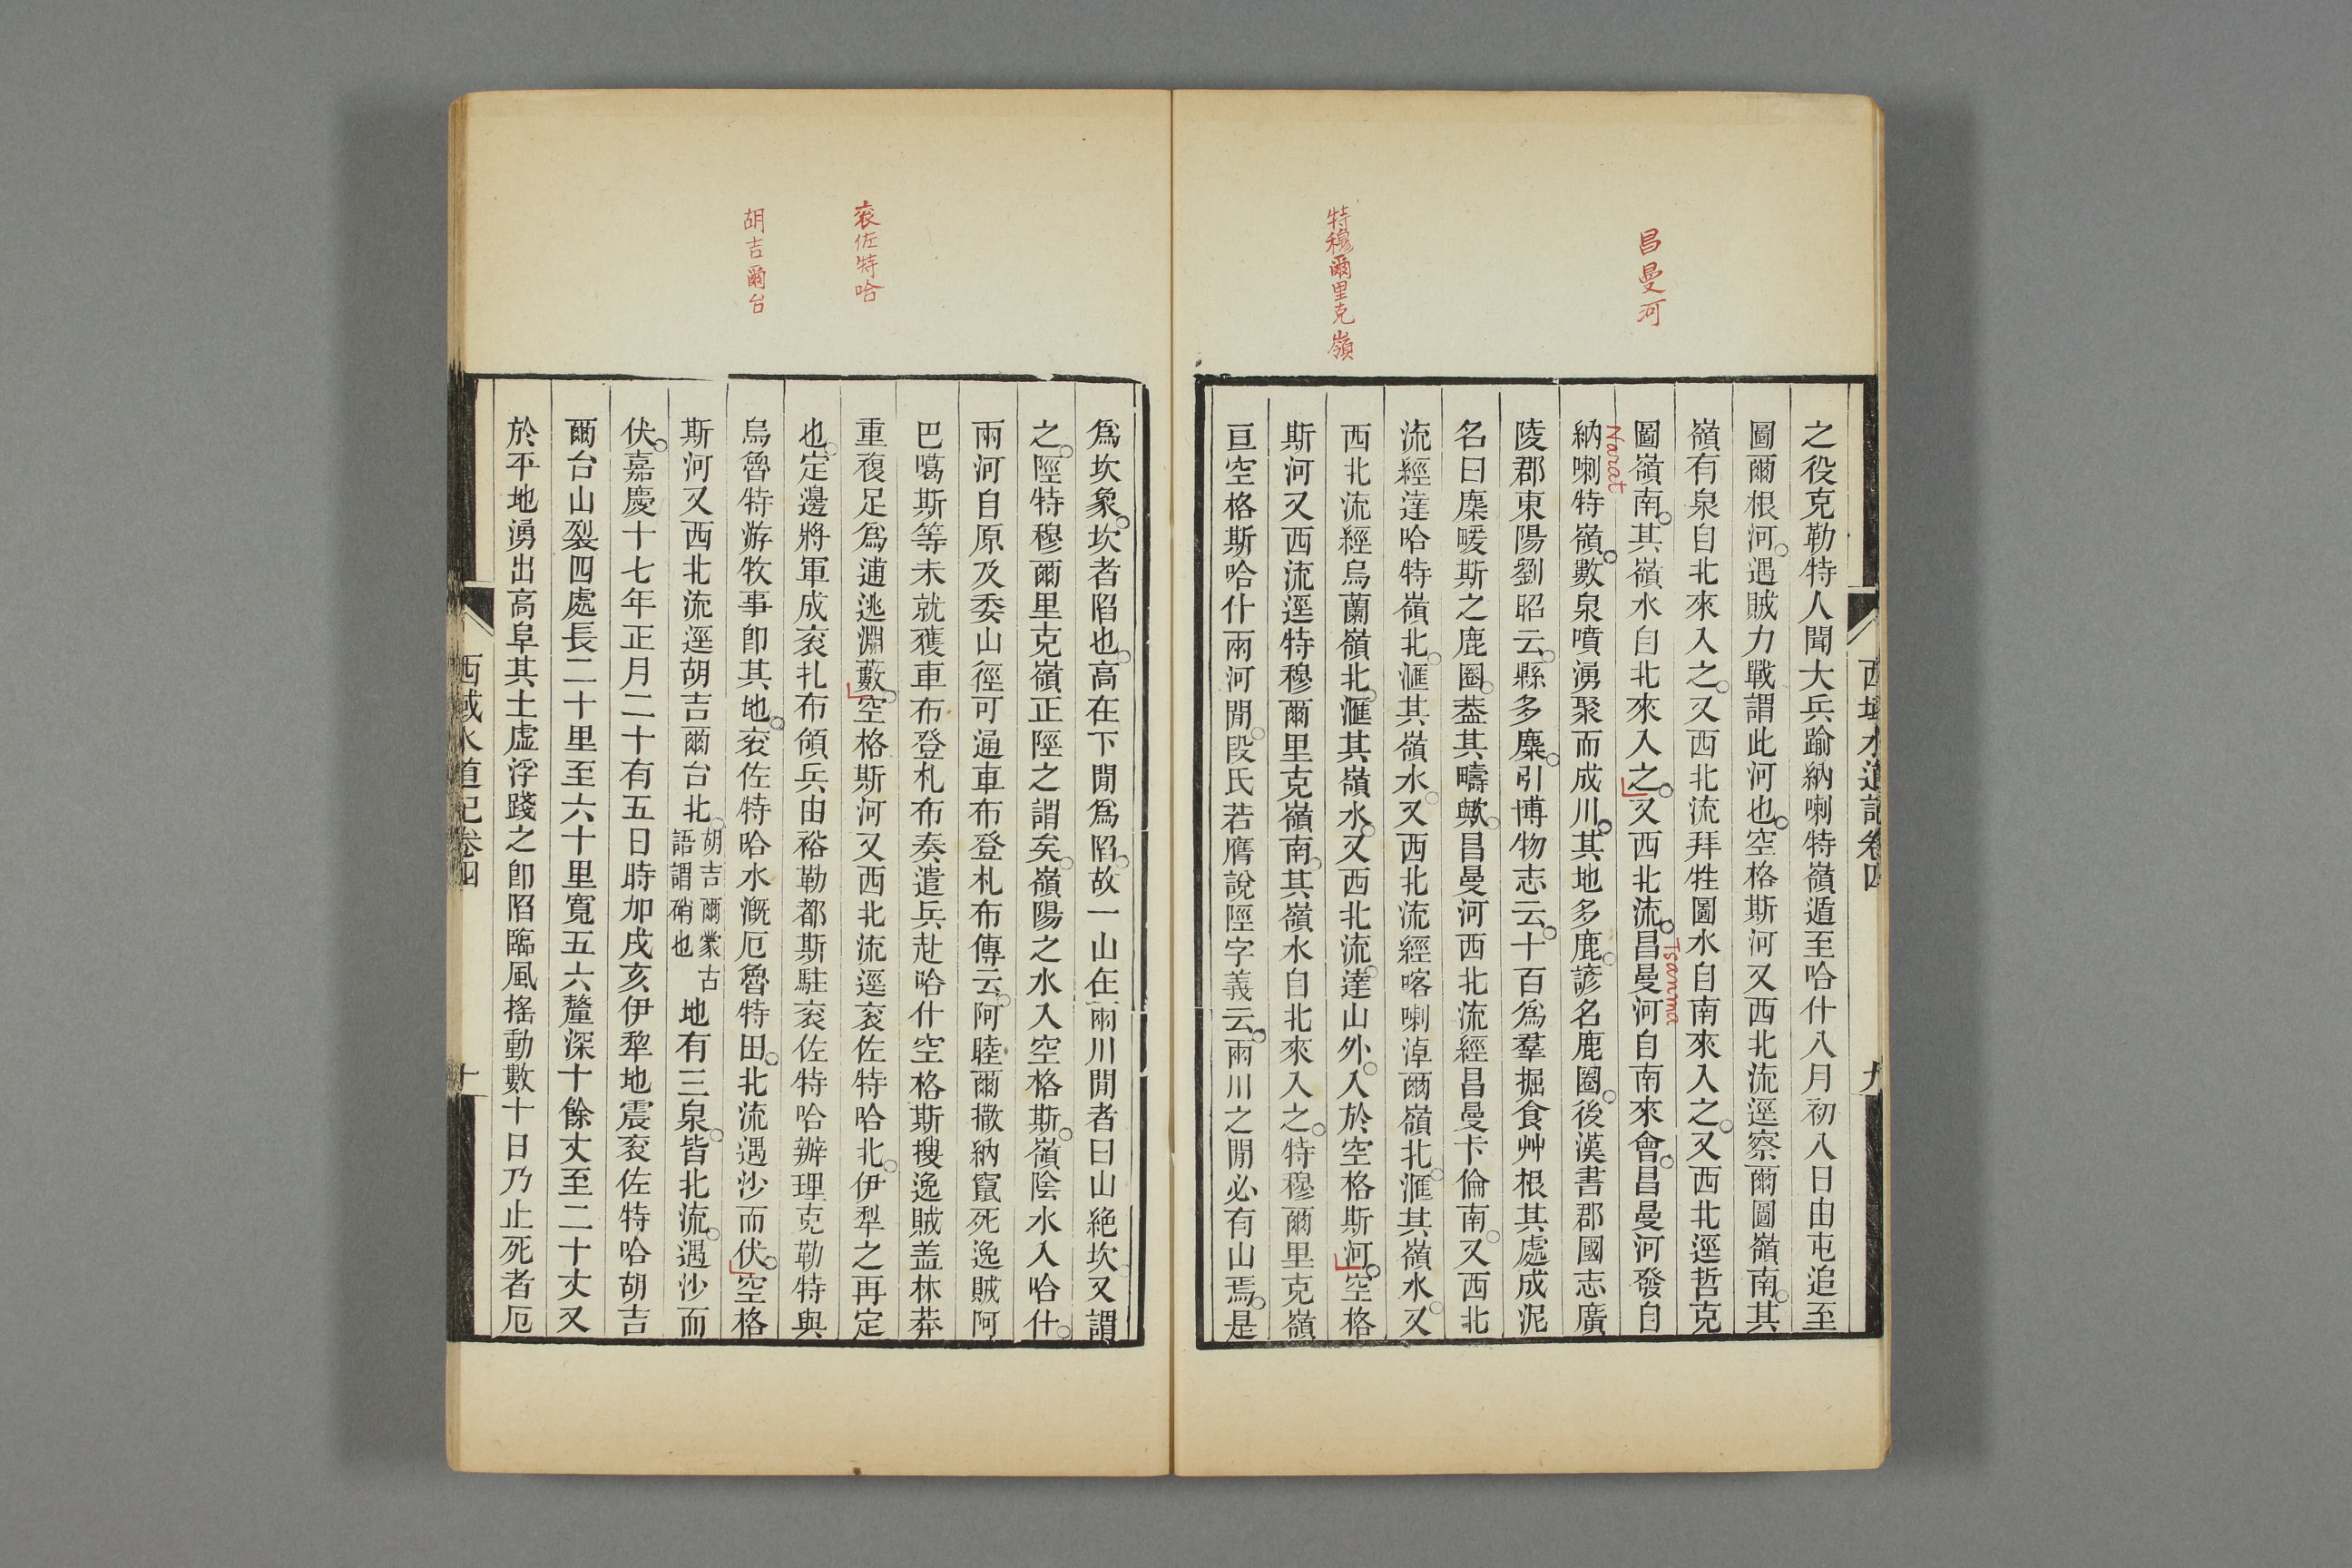 昌曼河
特穆爾里克嶺
西域水道記卷四
九
之役克勒特人聞大兵踰納喇特嶺遁至哈什八月初八日由屯追至
圖爾根河遇賊力戰謂此河也空格斯河又西北流逕察爾圖嶺南其
嶺有泉自北來入之又西北流拜牲圖水自南來入之又西北逕哲克
圖嶺南其嶺水自北來入之又西北流昌曼河自南來會昌曼河發自
Tsanma
納喇特嶺數泉噴湧聚而成川其地多鹿諺名鹿圈後漢書郡國志廣
Narat
陵郡東陽劉昭云縣多麋引博物志云十百爲羣掘食艸根其處成泥
名曰麋暖斯之鹿圈葢其疇歟昌曼河西北流經昌曼卡倫南又西北
流經達哈特嶺北滙其嶺水又西北流經喀喇淖爾嶺北滙其嶺水又
西北流經烏蘭嶺北滙其嶺水又西北流達山外入於空格斯河空格
斯河又西流逕特穆爾里克嶺南其嶺水自北來入之特穆爾里克嶺
亘空格斯哈什兩河閒段氏若膺說陘字義云兩川之閒必有山焉是
袞佐特哈
胡吉爾台
爲坎象坎者陷也高在下閒爲陷故一山在兩川閒者曰山絶坎又謂
之陘特穆爾里克嶺正陘之謂矣嶺陽之水入空格斯嶺陰水入哈什
兩河自原及委山徑可通車布登札布傳云阿睦爾撒納竄死逸賊阿
巴噶斯等未就獲車布登札布奏遣兵赴哈什空格斯搜逸賊盖林莽
重複足爲逋逃淵藪空格斯河又西北流逕袞佐特哈北伊犁之再定
也定邊將軍成袞扎布領兵由裕勒都斯駐袞佐特哈辦理克勒特與
烏魯特游牧事卽其地袞佐特哈水漑厄魯特田北流遇沙而伏空格
斯河又西北流逕胡吉爾台北胡吉爾蒙古語謂硝也地有三泉皆北流遇沙而
伏嘉慶十七年正月二十有五日時加戌亥伊犂地震袞佐特哈胡吉
爾台山裂四處長二十里至六十里寬五六釐深十餘丈至二十丈又
於平地湧出高阜其土虛浮踐之卽陷臨風搖動數十日乃止死者厄
西域水道記卷四
十